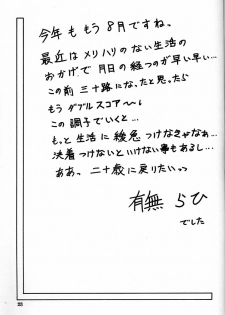 今年ももう8月ですね。
最近はメリハリのない生活の
おかげで月日の経つのが早い早い…
この前三十路になったと思ったら
もうダブルスコア〜
この調子でいくと…
もっと生活に緩急つけなきゃなぁ…
決着つけないといけない事もあるし…
ああ、二十歳に戻りたいっ
有無らひ
でした